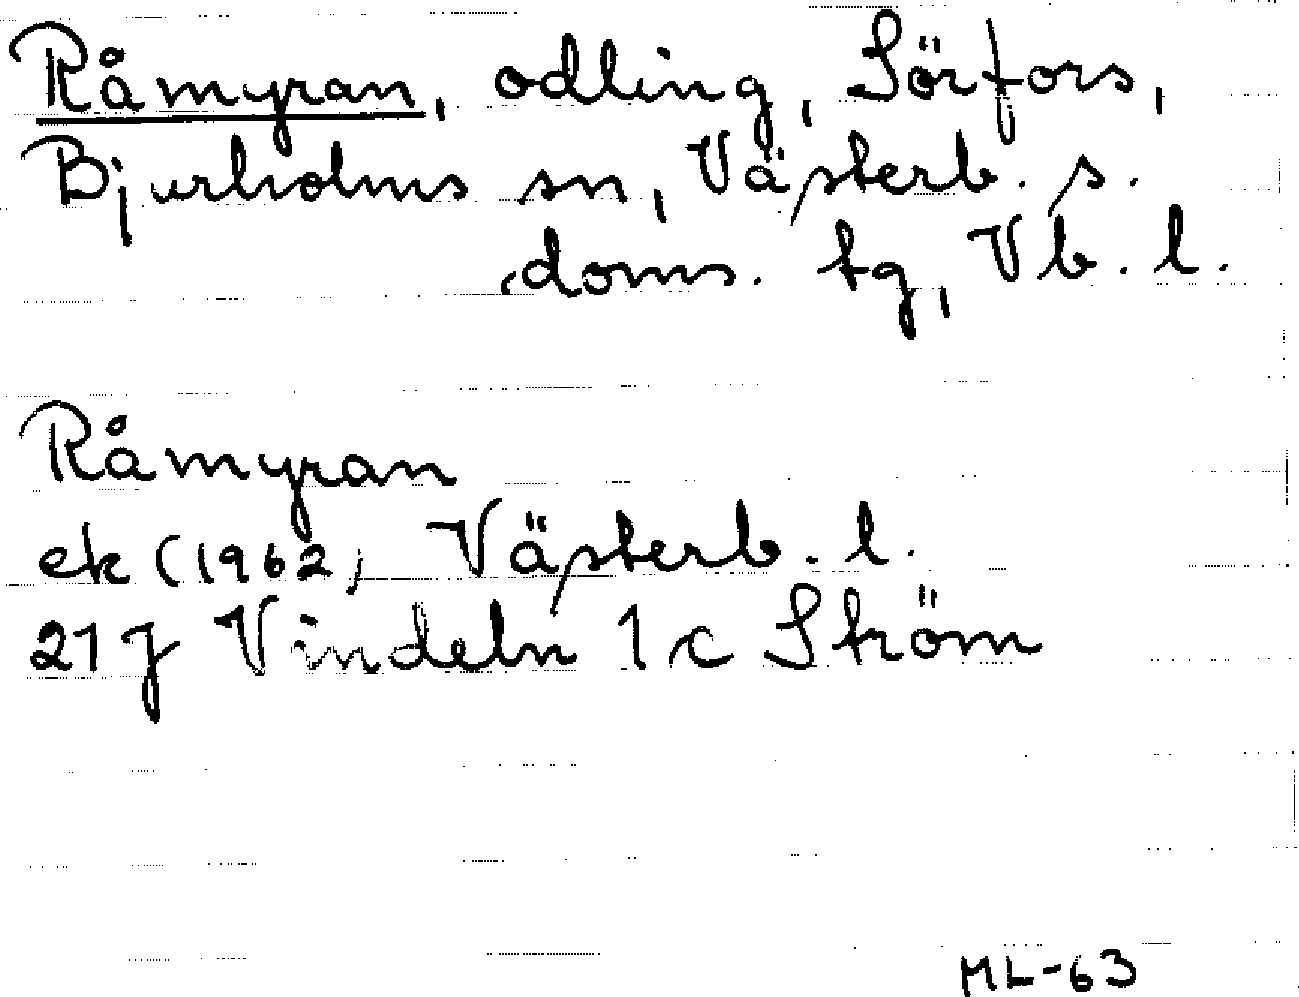 Råmyran, odling, Sörfors,
Bjurholms sn, Västerb. s.
doms. tg, Vb. l.
Råmyran
ek (1962) Västerb. l.
21 J Vindeln 1 c Ström
ML-63